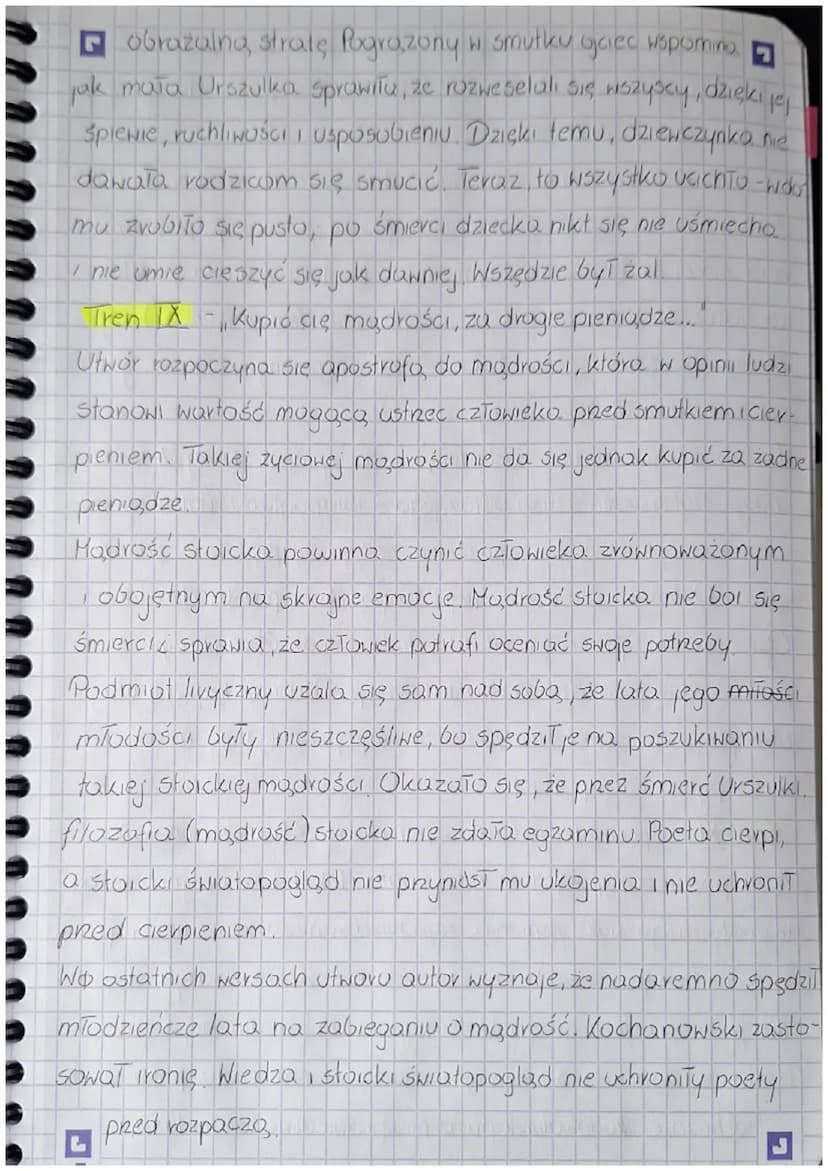 obrażalną stratę. Pogrążony w smutku ojciec wspomina
jak mała Urszulka sprawiła, że rozweselali się wszyscy, dzięki jej
śpiewie, ruchliwości i usposobieniu. Dzięki temu, dziewczynka nie
dawała rodzicom się smucić. Teraz, to wszystko ucichło - w do
mu zrobiło się pusto, po śmierci dziecka nikt się nie uśmiecha
i nie umie cieszyć się jak dawniej. Wszędzie był żal.
Tren IX - "Kupić cię mądrości, za drogie pieniądze..."
Utwór rozpoczyna się apostrofą do mądrości, która w opinii ludzi
stanowi wartość mogącą ustrzec człowieka przed smutkiem i cier-
pieniem. Takiej życiowej mądrości nie da się jednak kupić za żadne
pieniądze.
Mądrość stoicka powinna czynić człowieka zrównoważonym
i obojętnym na skrajne emocje. Mądrość stoicka nie boi się
śmierci i sprawia, że człowiek potrafi oceniać swoje potrzeby.
Podmiot liryczny użala się sam nad sobą, że lata jego miłości
młodości były nieszczęśliwe, bo spędził je na poszukiwaniu
takiej stoickiej mądrości. Okazało się, że przez śmierć Urszulki,
filozofia (mądrość) stoicka nie zdała egzaminu. Poeta cierpi,
a stoicki światopogląd nie przyniósł mu ukojenia i nie uchronił
przed cierpieniem.
W ostatnich wersach utworu autor wyznaje, że nadaremno spędził
młodzieńcze lata na zabieganiu o mądrość. Kochanowski zasto-
sował ironię. Wiedza i stoicki światopogląd nie uchroniły poety
przed rozpaczą.